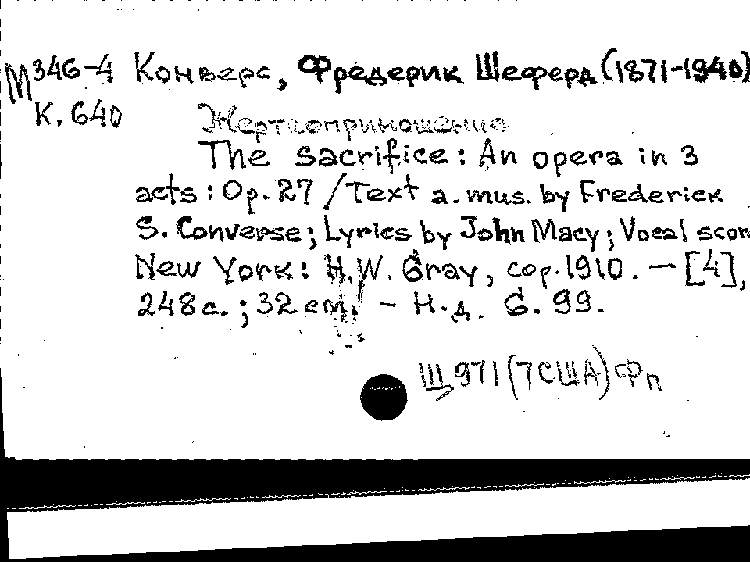 М 346-4 Конверс, Фредерик Шеферд (1871-1940)
К. 640
Жертвоприношение
The sacrifice : An opera in 3
acts : Op. 27 / Text a. mus. by Frederick
S. Converse ; Lyrics by John Macy ; Vocal scor
New York : H.W. Gray, cop. 1910. — [4],
248 с. ; 32 cm. - Н.д. G. 99.
Щ 971(7США)Фп